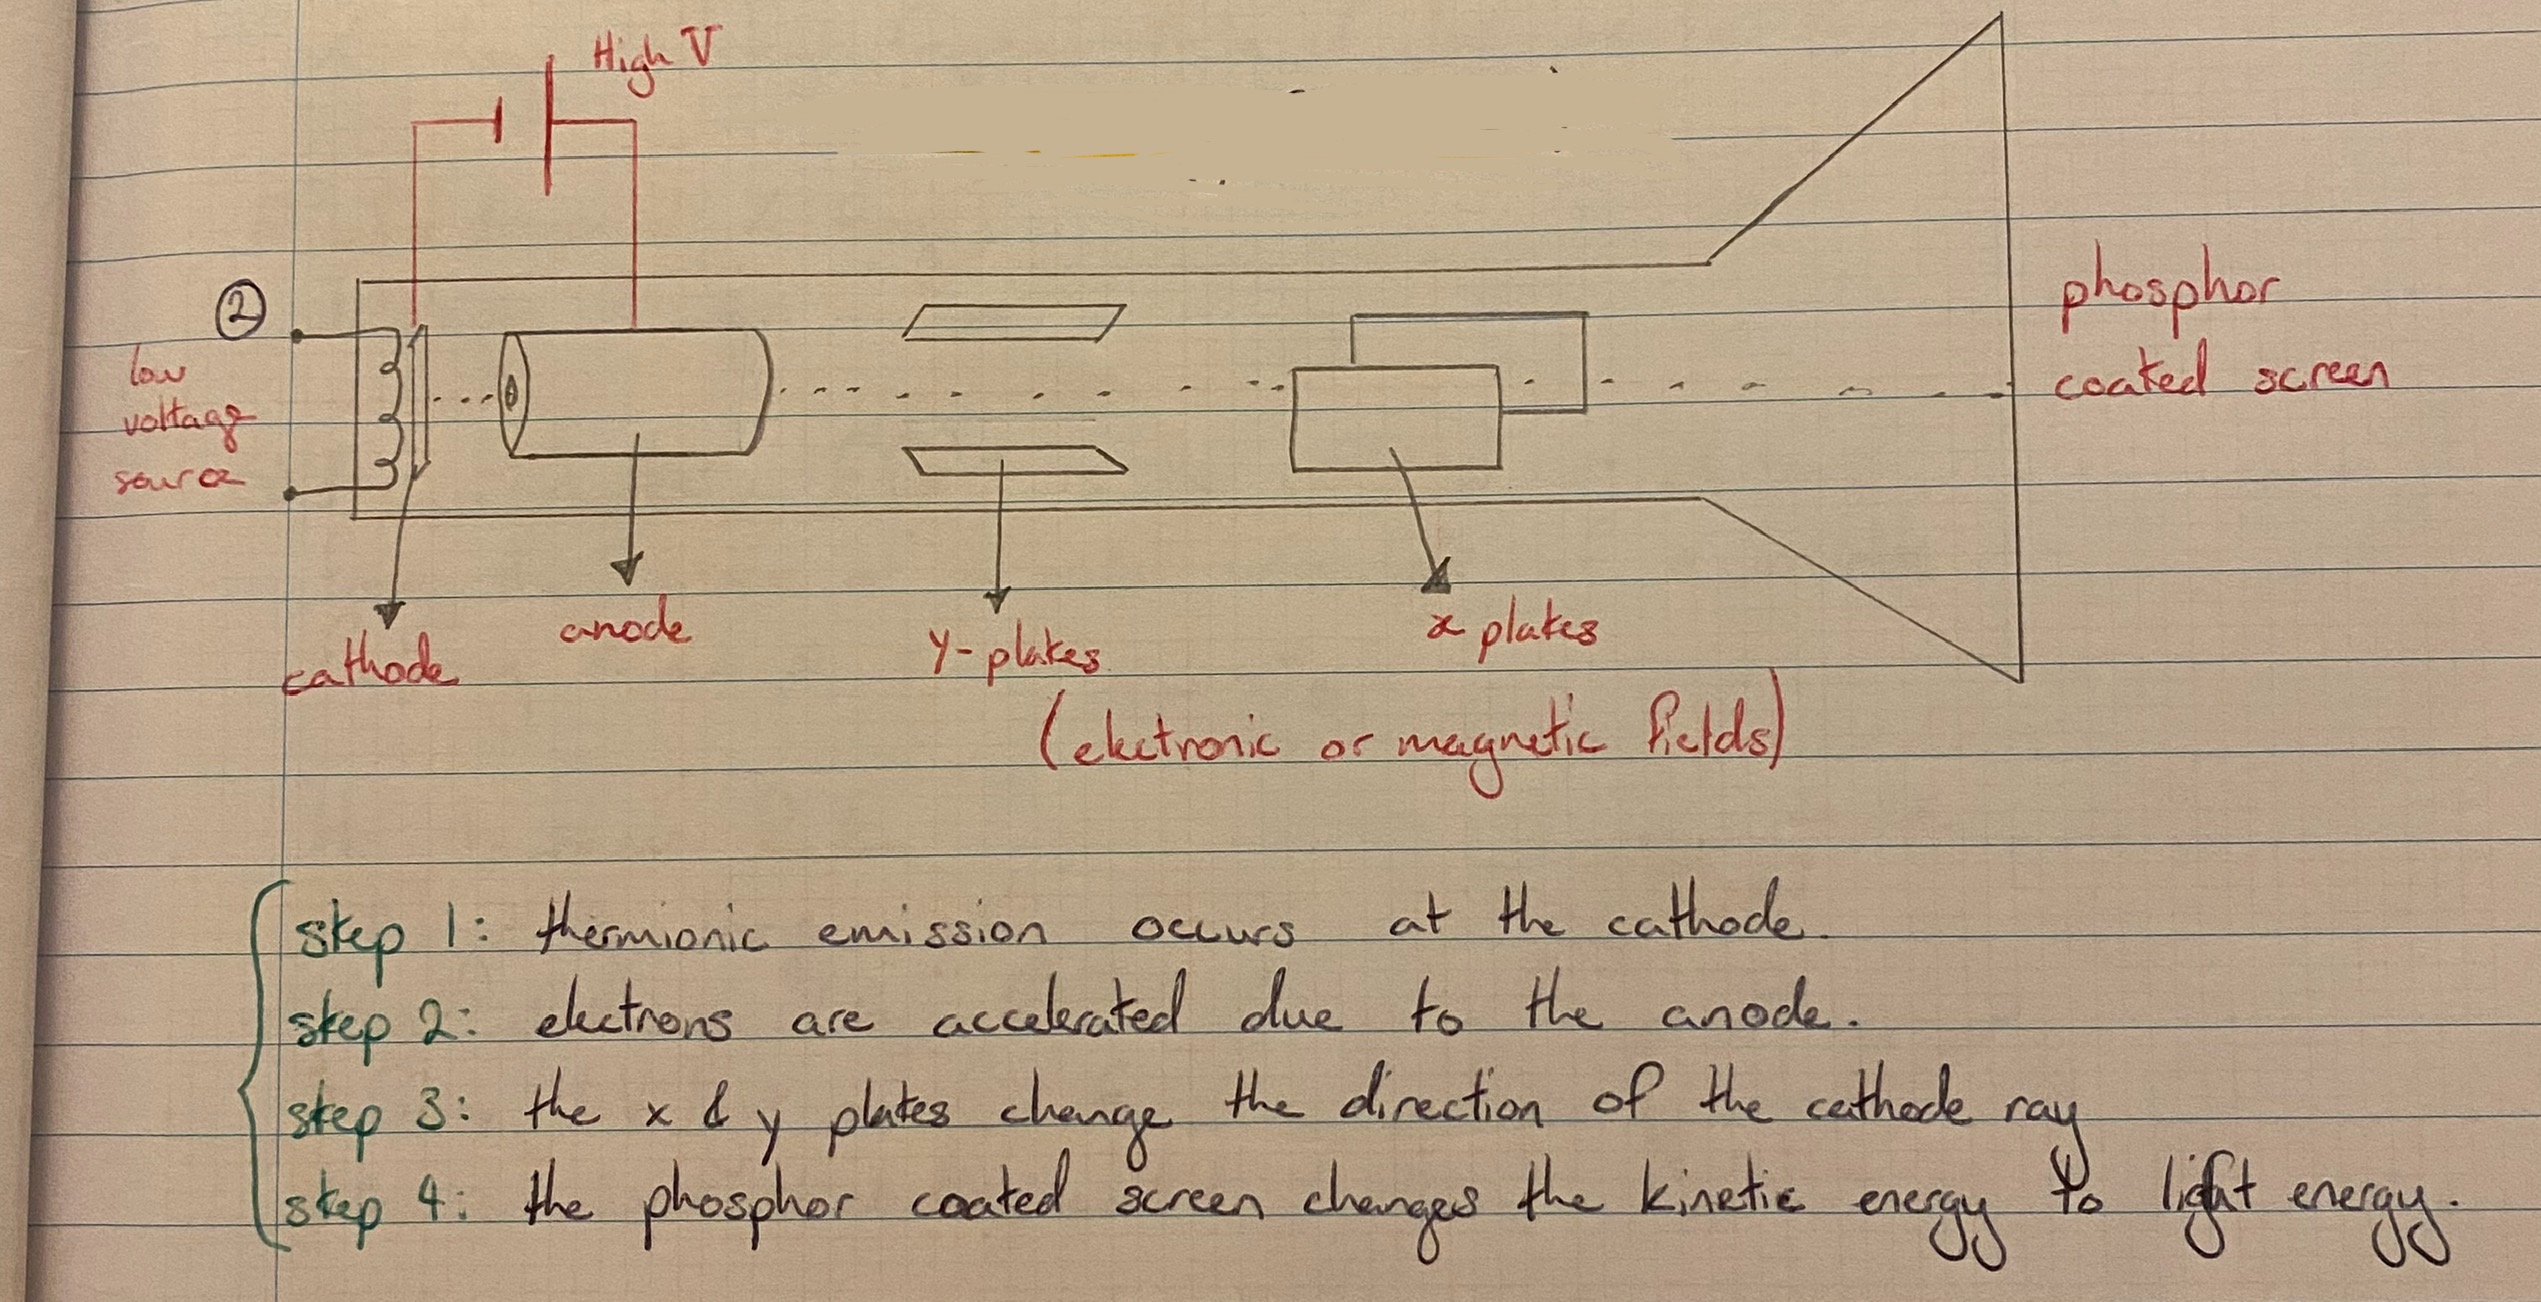 High V
②
low
voltage
source
phosphor
coated screen
cathode
anode
y-plates
x plates
(electronic or magnetic fields)
step 1: thermionic emission occurs at the cathode.
step 2: electrons are accelerated due to the anode.
step 3: the x & y plates change the direction of the cathode ray
step 4: the phosphor coated screen changes the kinetic energy to light energy.